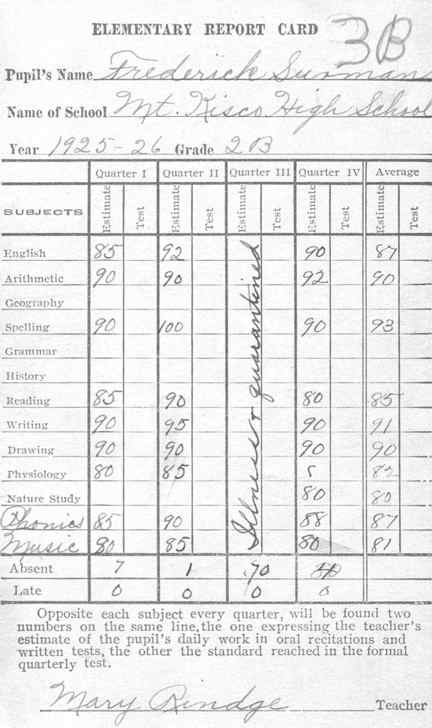 ELEMENTARY REPORT CARD 3B
Pupil's Name Frederick Surmans
Name of School Mt. Kisco High School
Year 1925-26 Grade 2B
Quarter I Quarter II Quarter III Quarter IV Average
SUBJECTS Estimate Test Estimate Test Estimate Test Estimate Test Estimate Test
Illness & quarantined
English 85 92 90 87
Arithmetic 90 90 92 90
Geography
Spelling 90 100 90 93
Grammar
History
Reading 85 90 80 85
Writing 90 95 90 91
Drawing 90 90 90 90
Physiology 80 85 82
Nature Study 80 80
Phonics 85 90 88 87
Music 80 85 80 81
Absent 7 1 70
Late 0 0 0 0
Opposite each subject every quarter, will be found two
numbers on the same line, the one expressing the teacher's
estimate of the pupil's daily work in oral recitations and
written tests, the other the standard reached in the formal
quarterly test.
Mary Rindge Teacher